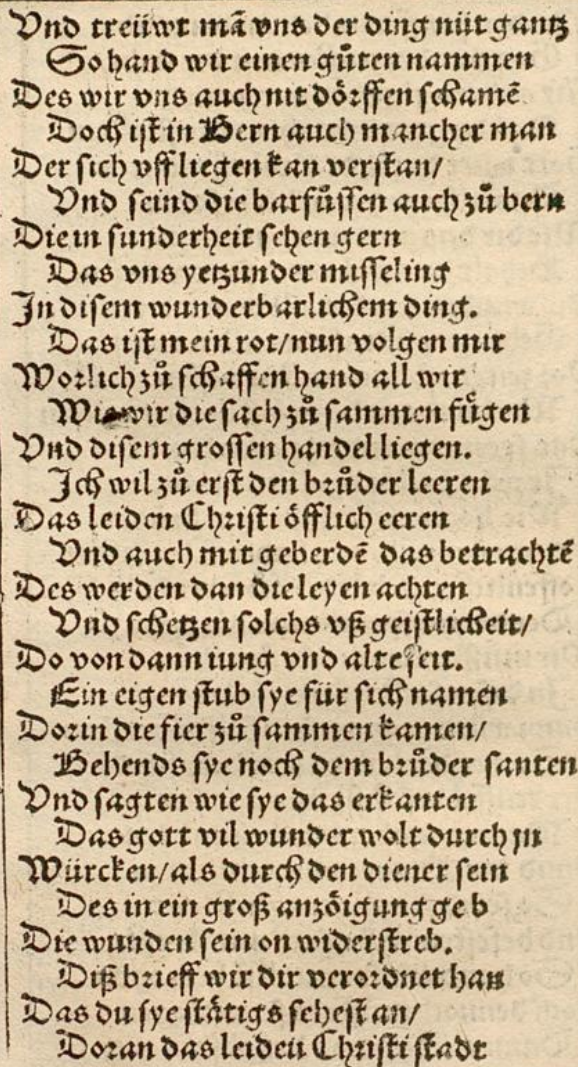 Vnd treüwt mā vns der ding nüt gantz
So hand wir einen gůten nammen
Des wir vns auch nit dörffen schamē
Doch ist in Bern auch mancher man
Der sich vff liegen kan verstan/
Vnd seind die barfůssen auch zů bern
Die in sunderheit sehen gern
Das vns yetzunder misseling
In disem wunderbarlichem ding.
Das ist mein rot/nun volgen mir
Worlich zů schaffen hand all wir
Wie wir die sach zů sammen fůgen
Vnd disem grossen handel liegen.
Ich wil zů erst den brůder leeren
Das leiden Christi öfflich eeren
Vnd auch mit geberdē das betrachtē
Des werden dan die leyen achten
Vnd schetzen solchs vß geistlicheit/
Do von dann iung vnd alte seit.
Ein eigen stub sye für sich namen
Dorin die fier zů sammen kamen/
Behends sye noch dem brůder santen
Vnd sagten wie sye das erkanten
Das gott vil wunder wolt durch jn
Würcken/als durch den diener sein
Des in ein groß anzöigung geb
Die wunden sein on widerstreb.
Diß brieff wir dir verordnet han
Das du sye stätigs sehest an/
Doran das leiden Christi stadt